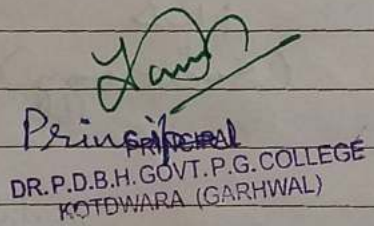 Principal
PRINCIPAL
DR.P.D.B.H.GOVT.P.G.COLLEGE
KOTDWARA (GARHWAL)